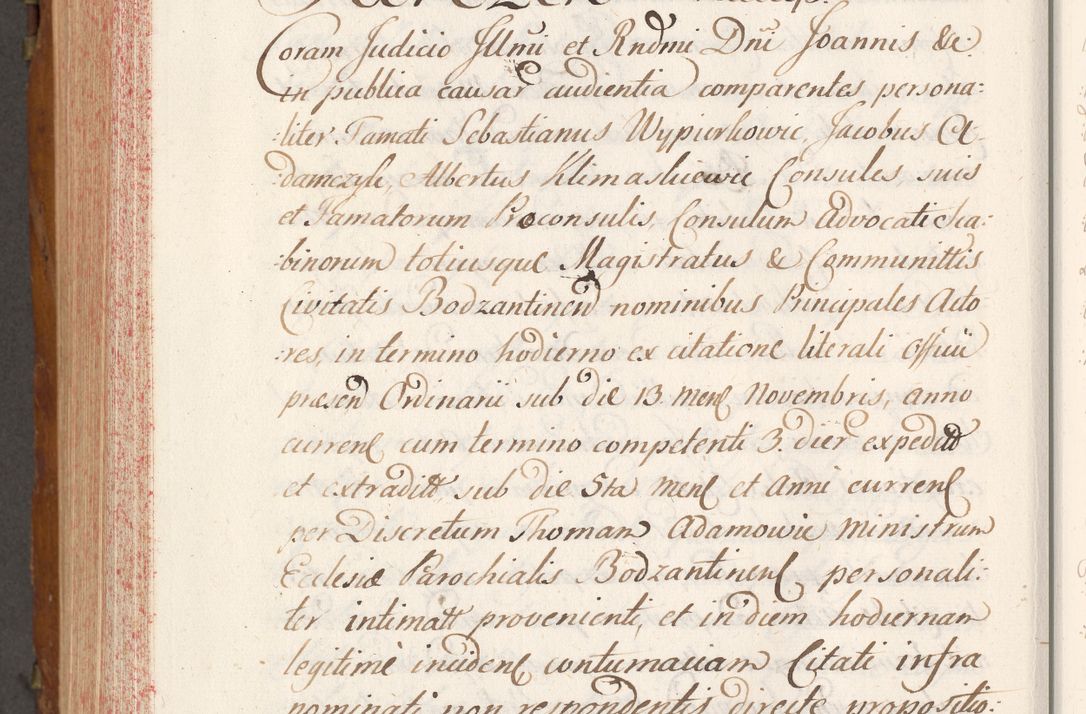 Coram Judicio Jllm̃i et Rndmi Dñi Joannis &c
in publica causar audientia comparentes persona:
:liter Famati Sebastianus Wypiurkowic, Jacobus A
:damczyk, Albertus Klimaskiewic Consules, suis
et Famatorum Proconsulis, Consulum Advocati Sca:
:binorum totiusque Magistratus & Communittis
Civitatis Bodzantinen nominibus Principales Acto
:res, in termino hodierno ex citatione literali Officii
præsen Ordinarii sub die 13. Mens Novembris, anno
currens cum termino competenti 3. dier expedit
et extradit, sub die 5ta Mens et Anni currens
per Discretum Thomam Adamowic Ministrum
Ecclesiæ Parochialis Bodzantinens personali:
ter intimatt provenienti, et in diem hodiernam
legitimè incidens contumaciam Citati infra
nominati non respondentis directe propositio: